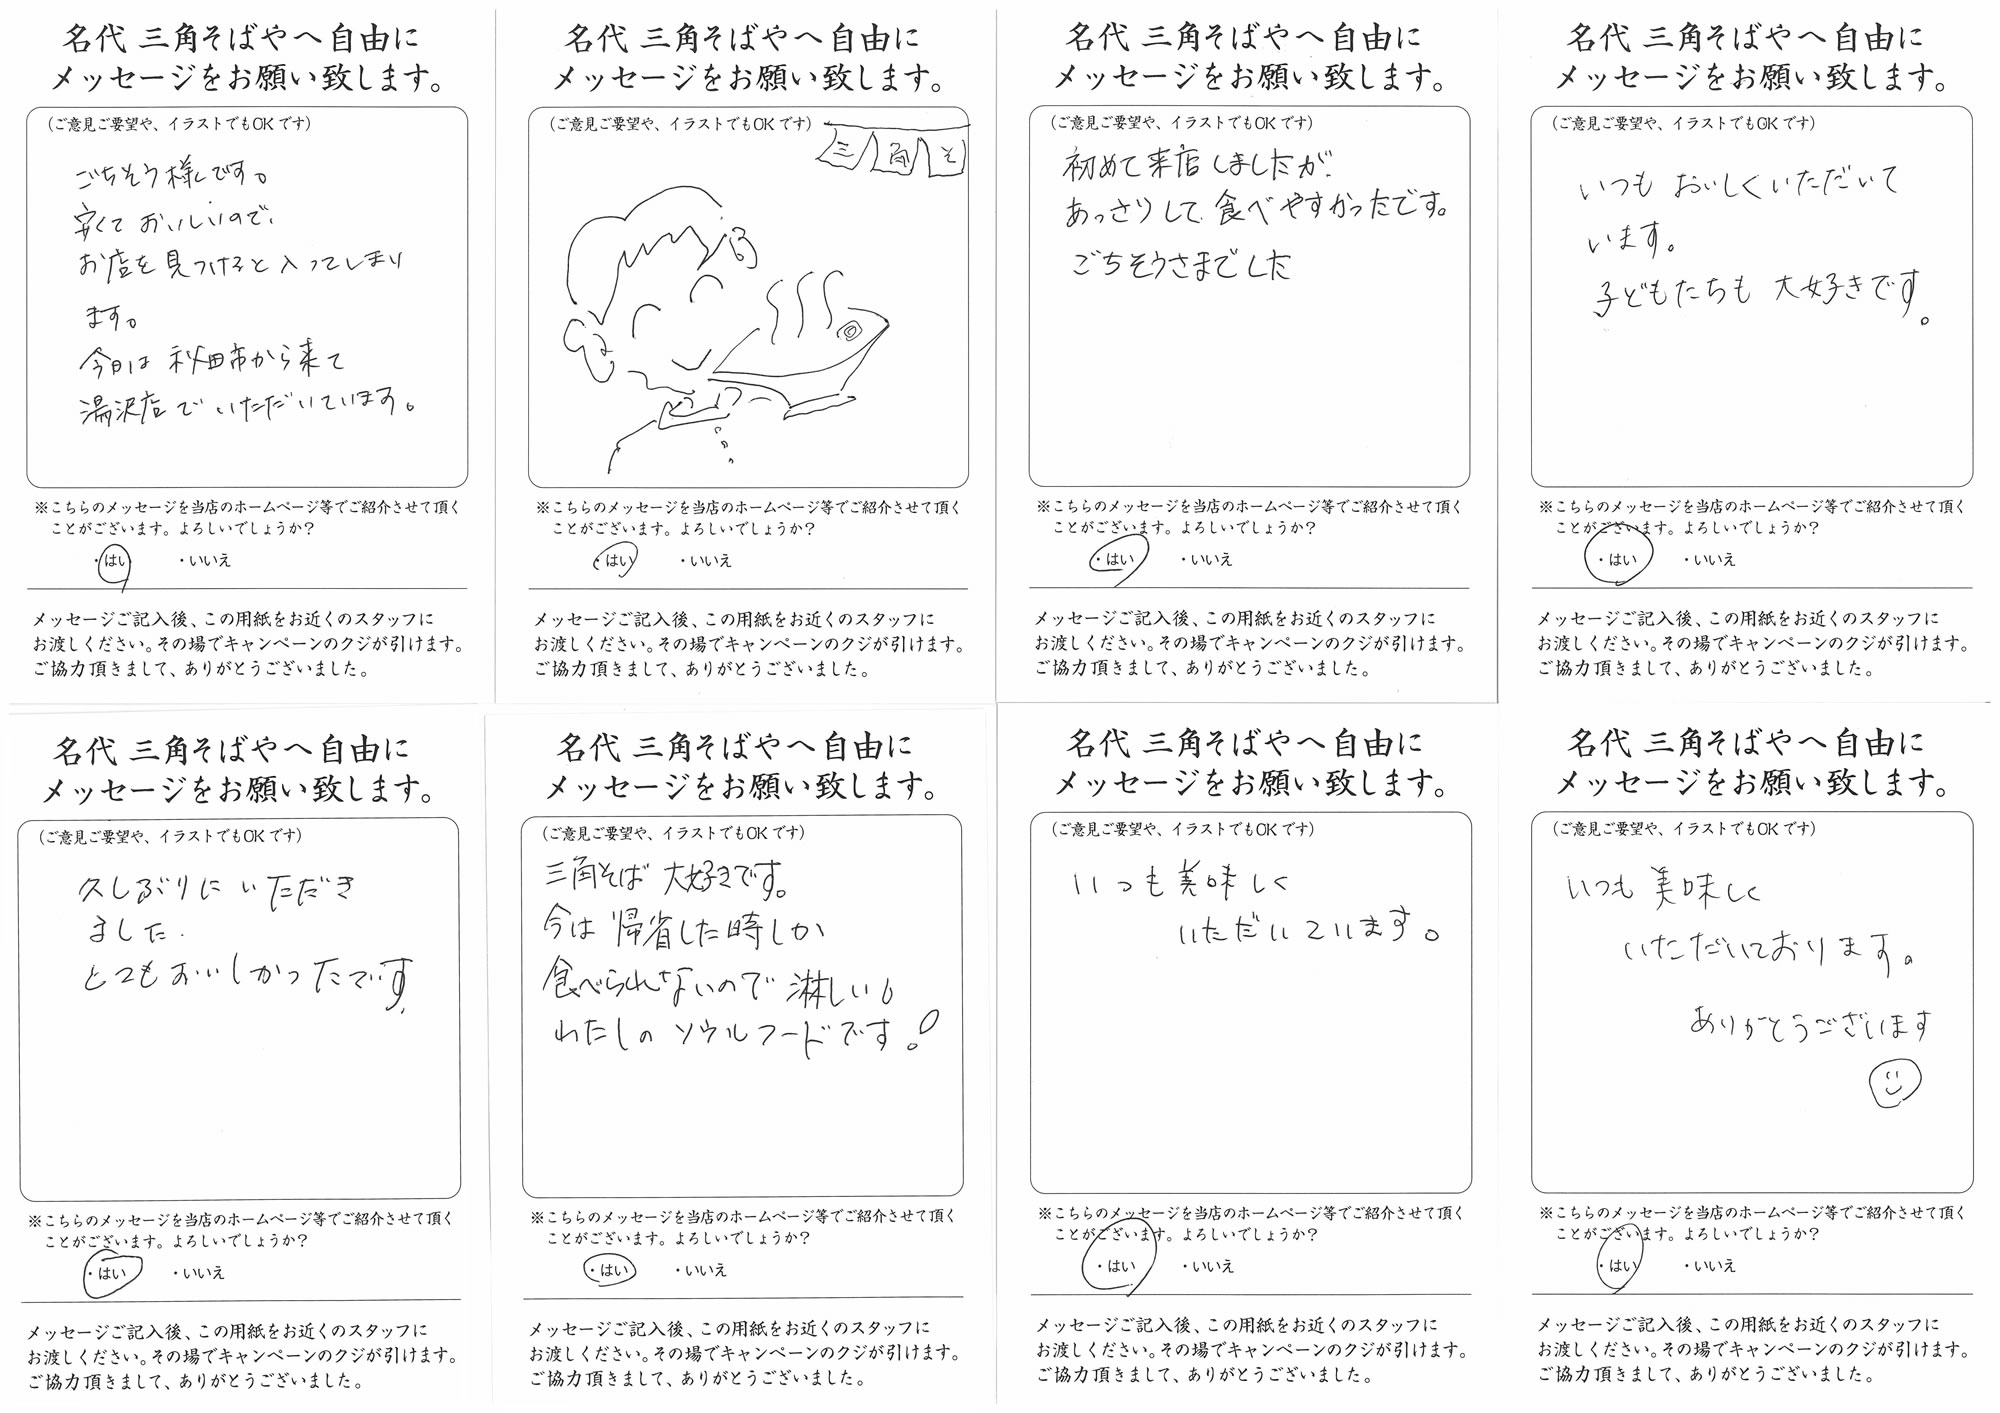 名代 三角そばやへ自由に
メッセージをお願い致します。
(ご意見ご要望や、イラストでもOKです)
ごちそう様です。
安くておいしいので、
お店を見つけると入ってしまり
ます。
今日は秋田市から来て
湯沢店でいただいています。
※こちらのメッセージを当店のホームページ等でご紹介させて頂く
ことがございます。よろしいでしょうか?
・はい ・いいえ
メッセージご記入後、この用紙をお近くのスタッフに
お渡しください。その場でキャンペーンのクジが引けます。
ご協力頂きまして、ありがとうございました。
名代 三角そばやへ自由に
メッセージをお願い致します。
(ご意見ご要望や、イラストでもOKです)
三 角 そ
※こちらのメッセージを当店のホームページ等でご紹介させて頂く
ことがございます。よろしいでしょうか?
・はい ・いいえ
メッセージご記入後、この用紙をお近くのスタッフに
お渡しください。その場でキャンペーンのクジが引けます。
ご協力頂きまして、ありがとうございました。
名代 三角そばやへ自由に
メッセージをお願い致します。
(ご意見ご要望や、イラストでもOKです)
初めて来店しましたが、
あっさりして食べやすかったです。
ごちそうさまでした
※こちらのメッセージを当店のホームページ等でご紹介させて頂く
ことがございます。よろしいでしょうか?
・はい ・いいえ
メッセージご記入後、この用紙をお近くのスタッフに
お渡しください。その場でキャンペーンのクジが引けます。
ご協力頂きまして、ありがとうございました。
名代 三角そばやへ自由に
メッセージをお願い致します。
(ご意見ご要望や、イラストでもOKです)
いつも おいしくいただいて
います。
子どもたちも 大好きです。
※こちらのメッセージを当店のホームページ等でご紹介させて頂く
ことがございます。よろしいでしょうか?
・はい ・いいえ
メッセージご記入後、この用紙をお近くのスタッフに
お渡しください。その場でキャンペーンのクジが引けます。
ご協力頂きまして、ありがとうございました。
名代 三角そばやへ自由に
メッセージをお願い致します。
(ご意見ご要望や、イラストでもOKです)
久しぶりにいただき
ました.
とてもおいしかったです.
※こちらのメッセージを当店のホームページ等でご紹介させて頂く
ことがございます。よろしいでしょうか?
・はい ・いいえ
メッセージご記入後、この用紙をお近くのスタッフに
お渡しください。その場でキャンペーンのクジが引けます。
ご協力頂きまして、ありがとうございました。
名代 三角そばやへ自由に
メッセージをお願い致します。
(ご意見ご要望や、イラストでもOKです)
三角そば 大好きです。
今は帰省した時しか
食べられないので淋しい
わたしの ソウルフードです!
※こちらのメッセージを当店のホームページ等でご紹介させて頂く
ことがございます。よろしいでしょうか?
・はい ・いいえ
メッセージご記入後、この用紙をお近くのスタッフに
お渡しください。その場でキャンペーンのクジが引けます。
ご協力頂きまして、ありがとうございました。
名代 三角そばやへ自由に
メッセージをお願い致します。
(ご意見ご要望や、イラストでもOKです)
いつも美味しく
いただいています。
※こちらのメッセージを当店のホームページ等でご紹介させて頂く
ことがございます。よろしいでしょうか?
・はい ・いいえ
メッセージご記入後、この用紙をお近くのスタッフに
お渡しください。その場でキャンペーンのクジが引けます。
ご協力頂きまして、ありがとうございました。
名代 三角そばやへ自由に
メッセージをお願い致します。
(ご意見ご要望や、イラストでもOKです)
いつも美味しく
いただいております。
ありがとうございます
※こちらのメッセージを当店のホームページ等でご紹介させて頂く
ことがございます。よろしいでしょうか?
・はい ・いいえ
メッセージご記入後、この用紙をお近くのスタッフに
お渡しください。その場でキャンペーンのクジが引けます。
ご協力頂きまして、ありがとうございました。